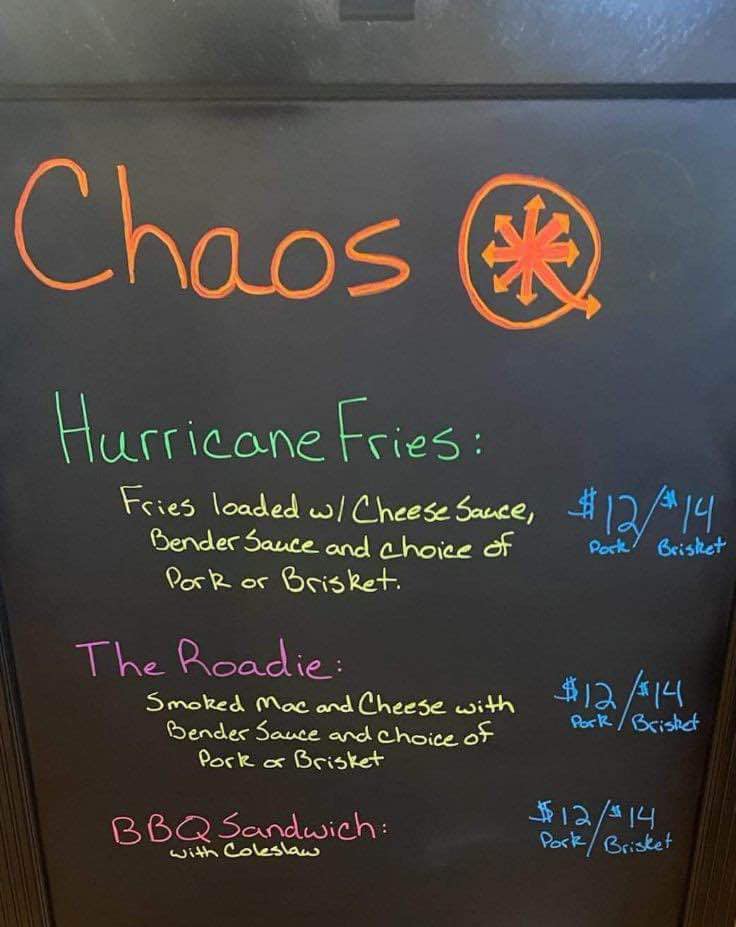 Chaos
Hurricane Fries:
Fries loaded w/ Cheese Sauce,
Bender Sauce and choice of
Pork or Brisket.
$12/$14
Pork/ Brisket
The Roadie:
Smoked Mac and Cheese with
Bender Sauce and choice of
Pork or Brisket
$12/$14
Pork/Brisket
BBQ Sandwich:
with Coleslaw
$12/$14
Pork/Brisket